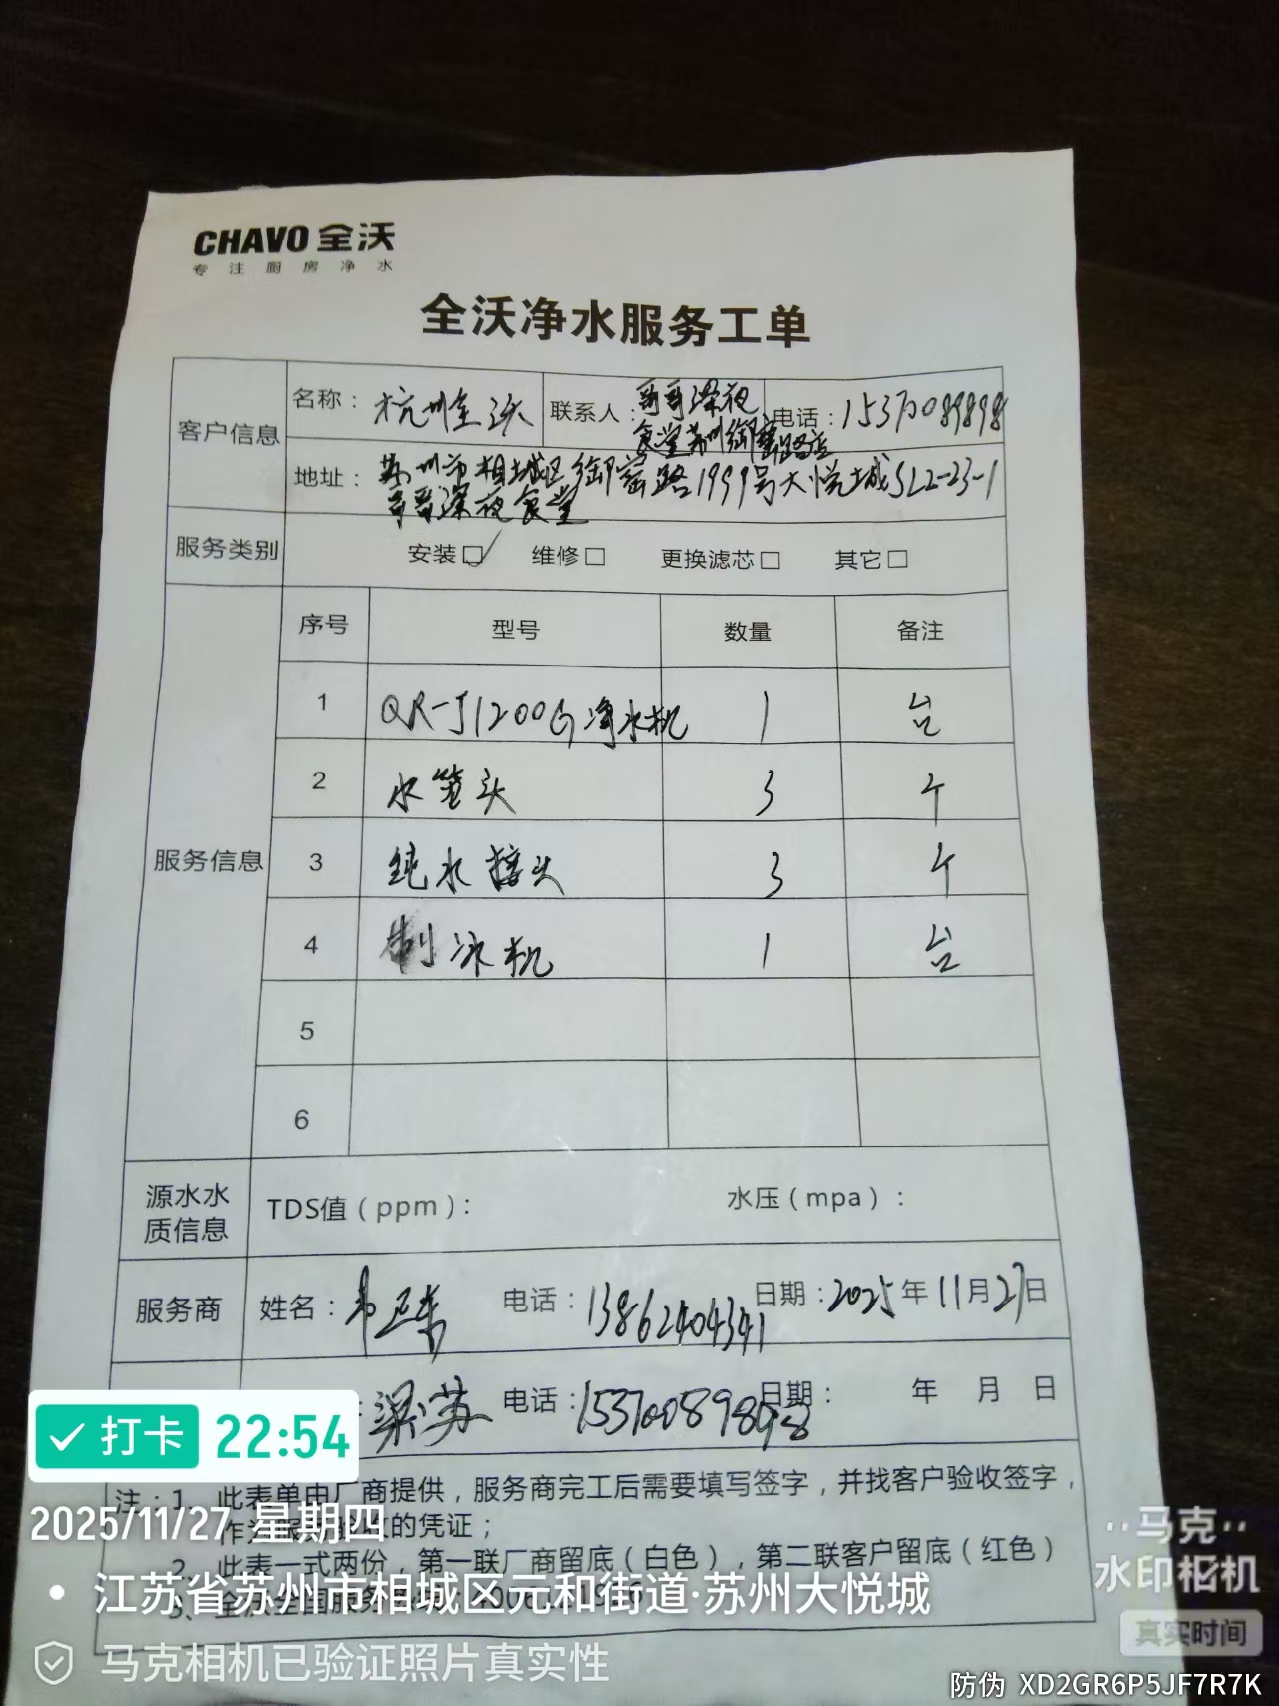 CHAVO 全沃
专注厨房净水
全沃净水服务工单
客户信息
名称：杭州全沃
联系人：哥哥深夜食堂苏州御窑路店
电话：15370089898
地址：苏州市相城区御窑路1999号大悦城SL2-23-1
哥哥深夜食堂
服务类别 安装☑ 维修□ 更换滤芯□ 其它□
服务信息
序号 型号 数量 备注
1 QR-J1200G净水机 1 台
2 水笼头 3 个
3 纯水接头 3 个
4 制冰机 1 台
5
6
源水水质信息 TDS值（ppm）： 水压（mpa）：
服务商 姓名： 电话：13862404341 日期：2025年11月27日
梁苏 电话：15370089898 日期： 年 月 日
注：1、此表单由厂商提供，服务商完工后需要填写签字，并找客户验收签字，
作为 的凭证；
2、此表一式两份，第一联厂商留底（白色），第二联客户留底（红色）
3、全沃全国服务
打卡 22:54
2025/11/27 星期四
江苏省苏州市相城区元和街道·苏州大悦城
马克相机已验证照片真实性
马克
水印相机
真实时间
防伪 XD2GR6P5JF7R7K